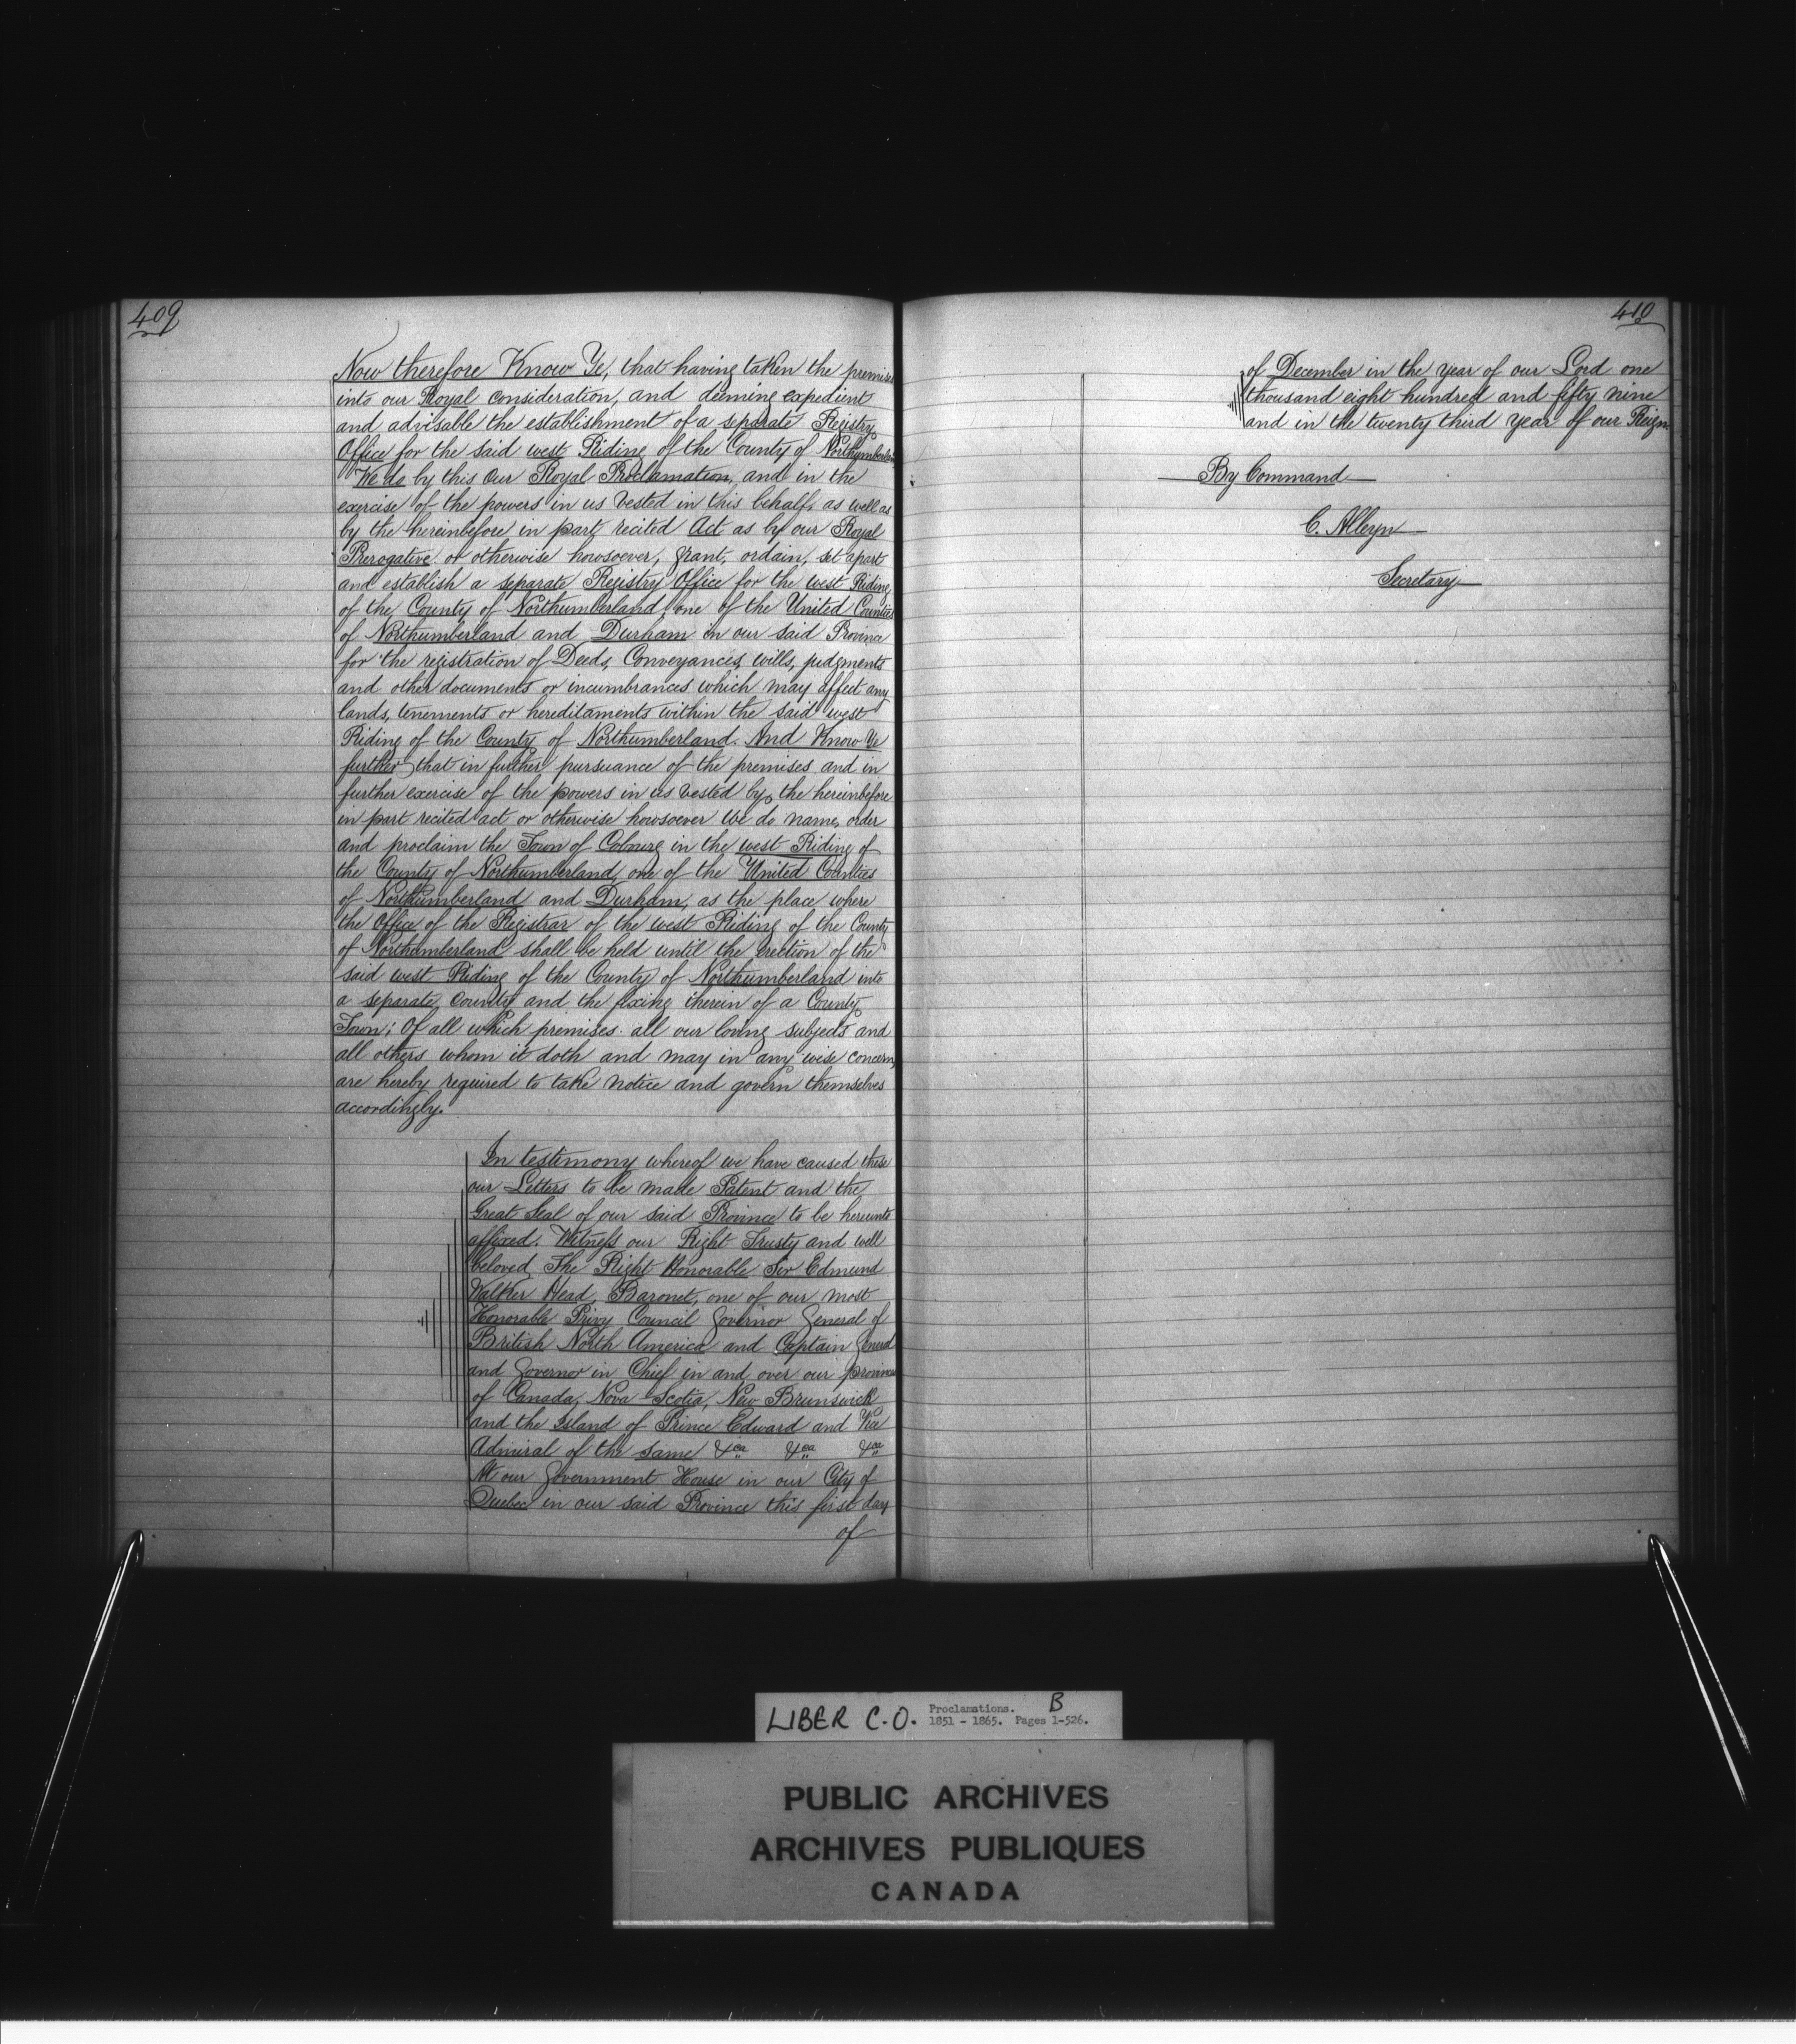 409
Now therefore Know Ye, that having taken the premises
into our Royal consideration, and deeming expedient
and advisable the establishment of a separate Registry
Office for the said west Riding of the County of Northumberland
We do by this Our Royal Proclamation, and in the
exercise of the powers in us vested in this behalf, as well as
by the hereinbefore in part recited Act as by our Royal
Prerogative or otherwise howsoever, grant, ordain, set apart
and establish a separate Registry Office for the west Riding
of the County of Northumberland, one of the United Counties
of Northumberland and Durham in our said Province
for the registration of Deeds, Conveyances, wills, judgments
and other documents or incumbrances which may affect any
lands, tenements or hereditaments within the said west
Riding of the County of Northumberland. And Know Ye
further that in further pursuance of the premises and in
further exercise of the powers in us vested by the hereinbefore
in part recited act or otherwise howsoever We do name, order
and proclaim the Town of Cobourg in the west Riding of
the County of Northumberland, one of the United Counties
of Northumberland and Durham, as the place where
the Office of the Registrar of the west Riding of the County
of Northumberland shall be held until the erection of the
said west Riding of the County of Northumberland into
a separate County and the fixing therein of a County
Town; Of all which premises all our loving subjects and
all others whom it doth and may in any wise concern,
are hereby required to take notice and govern themselves
accordingly.
In testimony whereof we have caused these
our Letters to be made Patent and the
Great Seal of our said Province to be hereunto
affixed. Witness our Right Trusty and well
beloved The Right Honorable Sir Edmund
Walker Head, Baronet, one of our most
Honorable Privy Council Governor General of
British North America and Captain General
and Governor in Chief in and over our provinces
of Canada, Nova Scotia, New Brunswick
and the Island of Prince Edward and Vice
Admiral of the same &ca &ca &ca
At our Government House in our City of
Quebec in our said Province this first day
of
410
of December in the year of our Lord one
thousand eight hundred and fifty nine
and in the twenty third year of our Reign.
By Command
C. Alleyn
Secretary
LIBER C.O. Proclamations. B
1851 - 1865. Pages 1-526.
PUBLIC ARCHIVES
ARCHIVES PUBLIQUES
CANADA